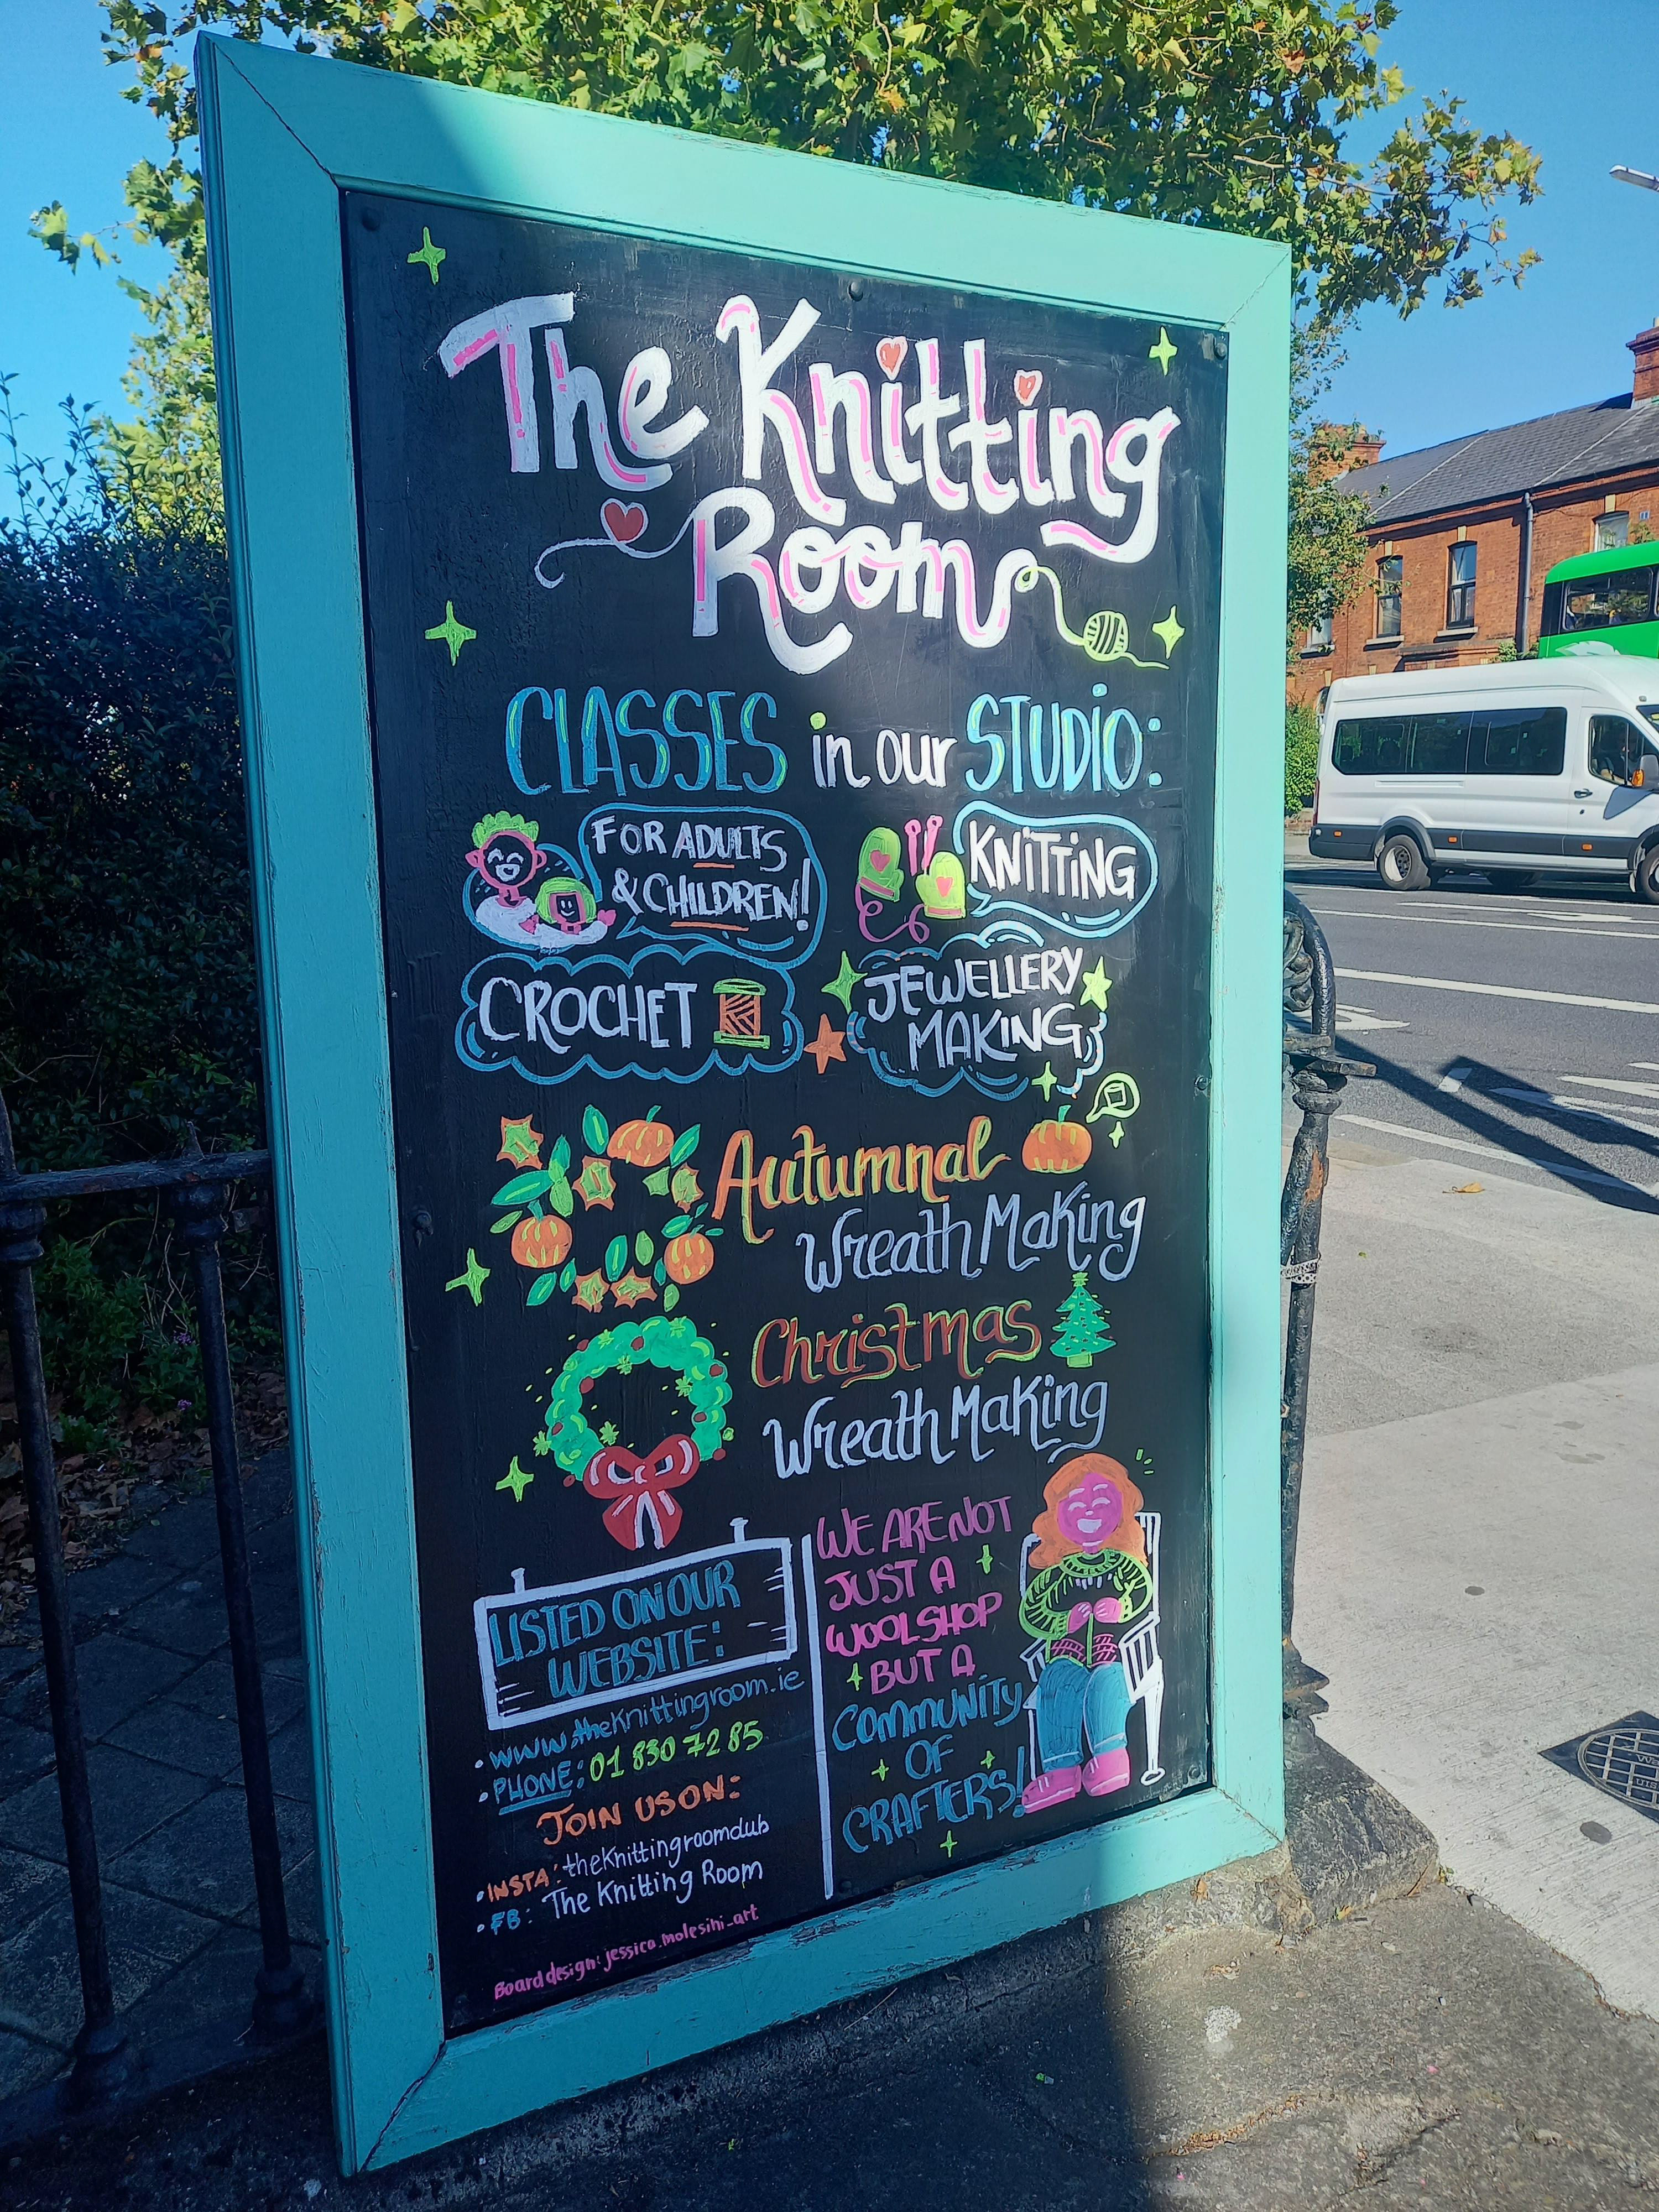 The Knitting
Room
CLASSES in our STUDIO:
FOR ADULTS
& CHILDREN!
KNITTING
CROCHET
JEWELLERY
MAKING
Autumnal
Wreath Making
Christmas
Wreath Making
LISTED ON OUR
WEBSITE:
• www.theknittingroom.ie
• PHONE: 01 830 7285
JOIN US ON:
• INSTA: theKnittingroomclub
• FB: The Knitting Room
Board design: jessica.molesini_art
WE ARE NOT
JUST A
WOOLSHOP
BUT A
COMMUNITY
OF
CRAFTERS!